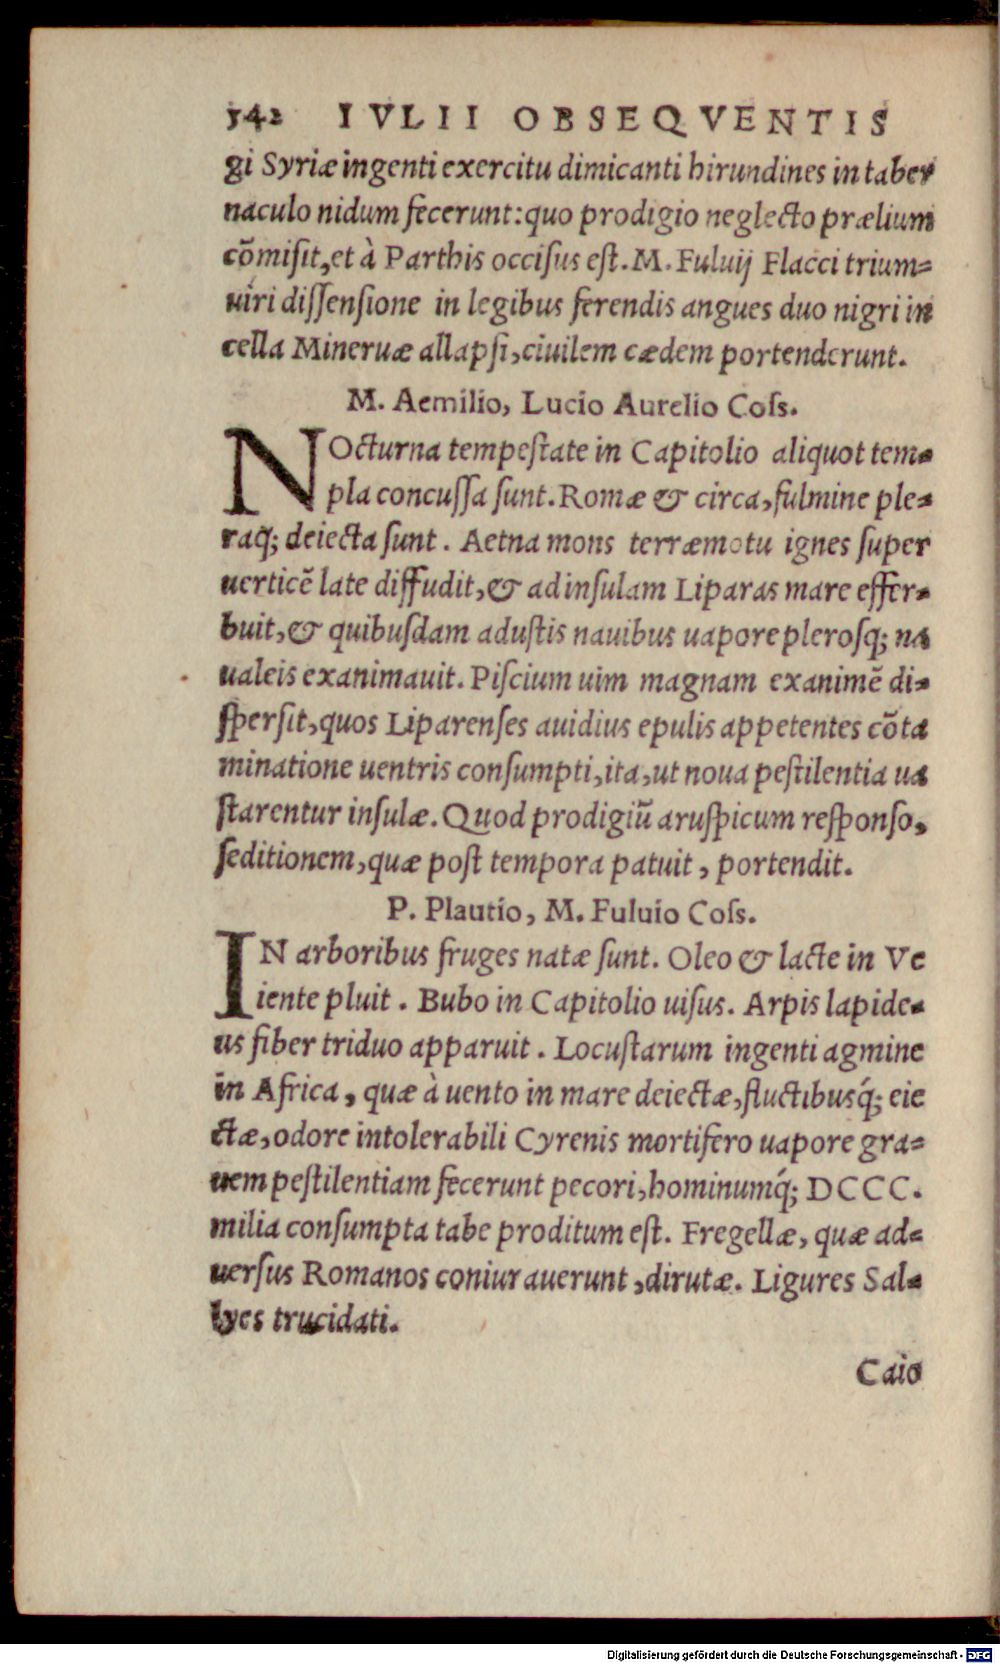 342 IVLII OBSEQVENTIS
gi Syriæ ingenti exercitu dimicanti hirundines in taber
naculo nidum fecerunt: quo prodigio neglecto prælium
cõmiſit, et à Parthis occiſus eſt. M. Fuluij Flacci trium=
uiri diſſenſione in legibus ferendis angues duo nigri in
cella Mineruæ allapſi, ciuilem cædem portenderunt.
M. Aemilio, Lucio Aurelio Coſs.
NOcturna tempeſtate in Capitolio aliquot tem=
pla concuſſa ſunt. Romæ & circa, fulmine ple=
raq; deiecta ſunt. Aetna mons terræmotu ignes ſuper
uerticẽ late diffudit, & ad inſulam Liparas mare effer=
buit, & quibuſdam aduſtis nauibus uapore pleroſq; na
ualeis exanimauit. Piſcium uim magnam exanimẽ di=
ſperſit, quos Liparenſes auidius epulis appetentes cõta
minatione uentris conſumpti, ita, ut noua peſtilentia ua
ſtarentur inſulæ. Quod prodigiũ aruſpicum reſponſo,
ſeditionem, quæ poſt tempora patuit, portendit.
P. Plautio, M. Fuluio Coſs.
IN arboribus fruges natæ ſunt. Oleo & lacte in Ve
iente pluit. Bubo in Capitolio uiſus. Arpis lapide=
us fiber triduo apparuit. Locuſtarum ingenti agmine
in Africa, quæ à uento in mare deiectæ, fluctibusq́; eie
ctæ, odore intolerabili Cyrenis mortifero uapore gra=
uem peſtilentiam fecerunt pecori, hominumq́; DCCC.
milia conſumpta tabe proditum eſt. Fregellæ, quæ ad=
uerſus Romanos coniurauerunt, dirutæ. Ligures Sal=
lyes trucidati.
Caio
Digitalisierung gefördert durch die Deutsche Forschungsgemeinschaft - DFG